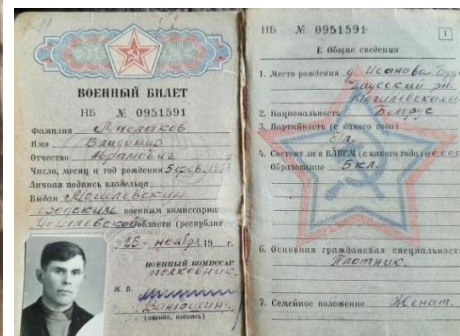 ВОЕННЫЙ БИЛЕТ
НБ № 0951591
Фамилия Маслаков
Имя Владимир
Отчество Абрамович
Число, месяц и год рождения 5 фев.
Личная подпись владельца
Выдан Могилевским
военным комиссариа
Могилевской области (республик
"25" ноября 19 г.
ВОЕННЫЙ КОМИССАР
полковник
М. П.
(звание, подпись)
НБ № 0951591
1
I. Общие сведения
1. Место рождения д. Исанова
Чаусский рн.
Могилевская
2. Национальность Белорус
3. Партийность (с какого года)
б/п.
4. Состоит ли в ВЛКСМ (с какого года)
Образование 5 кл.
6. Основная гражданская специальность
Плотник.
7. Семейное положение Женат.